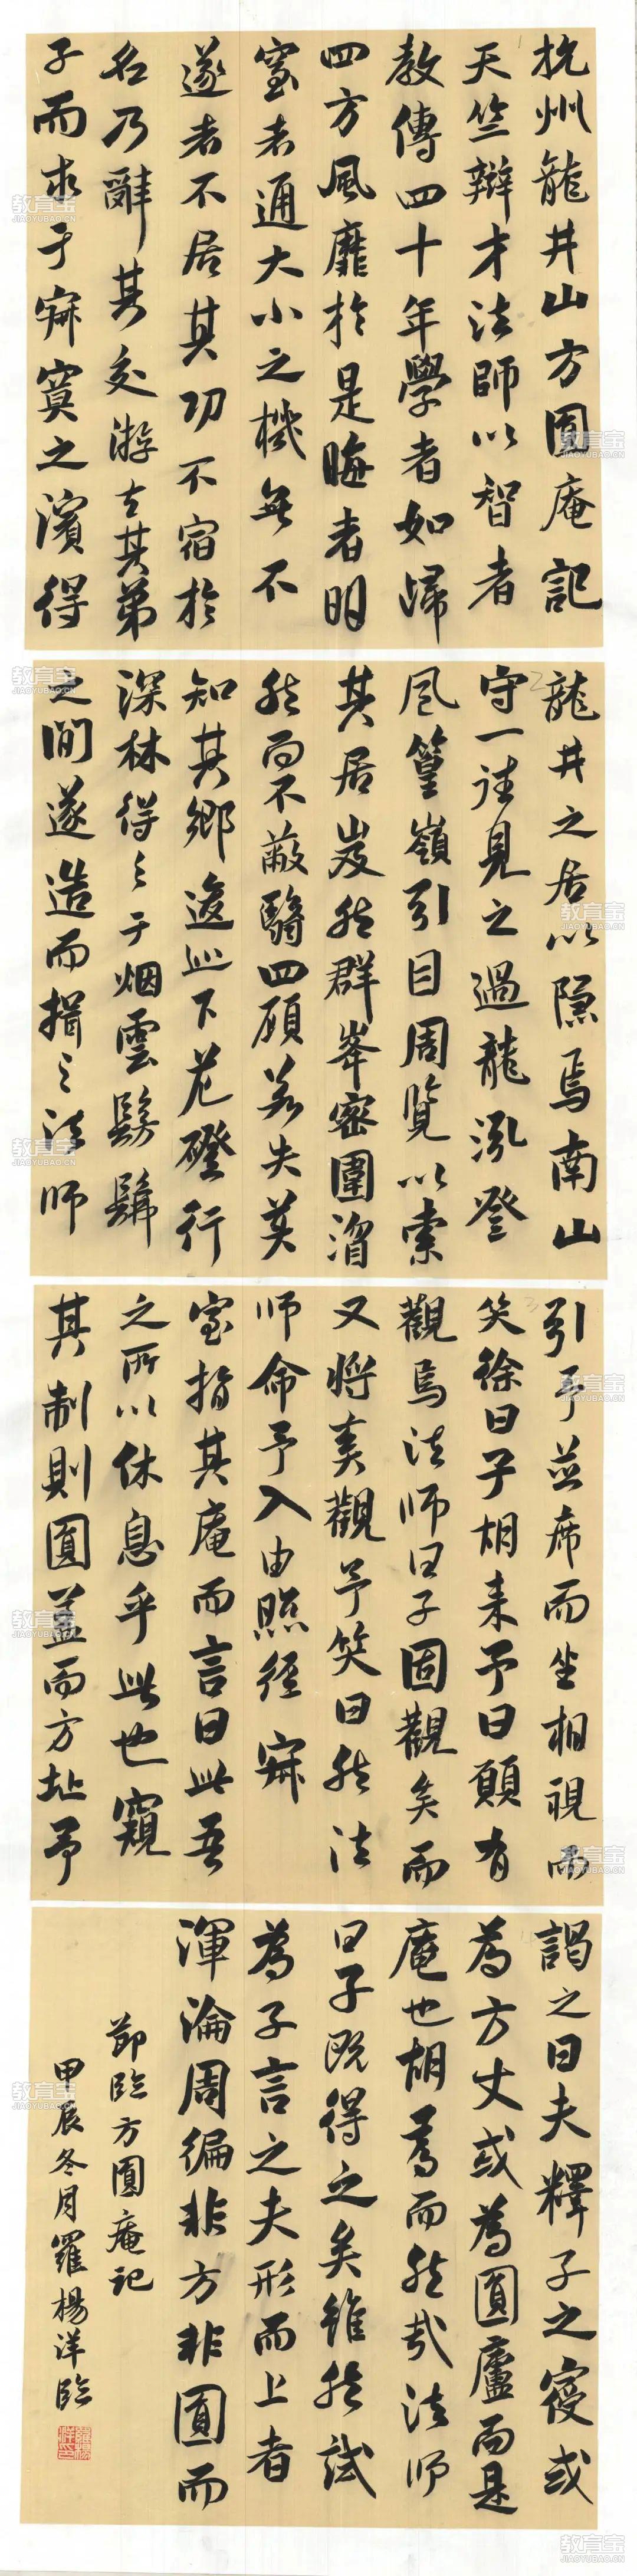 杭州龍井山方圓庵記
天竺辯才法師以智者
教傳四十年學者如歸
四方風靡於是晦者明
窒者通大小之機無不
遂者不居其功不宿於
名乃辭其交游去其弟
子而求于寂寞之濱得
龍井之居以隱焉南山
守一往見之過龍泓登
風篁嶺引目周覽以索
其居岌然群峯密圍溜
然而不蔽翳四顧若失莫
知其鄉逡巡下危磴行
深林得之于烟雲髣髴
之間遂造而揖之法師
引予並席而坐相視而
笑徐曰子胡来予曰願有
觀焉法師曰子固觀矣而
又將奚觀予笑曰然法
師命予入由照閣經寂
室指其庵而言曰此吾
之所以休息乎此也窺
其制則圓蓋而方址予
謁之曰夫釋子之寑或
為方丈或為圓廬而是
庵也胡為而然哉法師
曰子既得之矣雖然試
為子言之夫形而上者
渾淪周徧非方非圓而
節臨方圓庵記
甲辰冬月羅楊洋臨
教育宝
JIAOYUBAO.CN